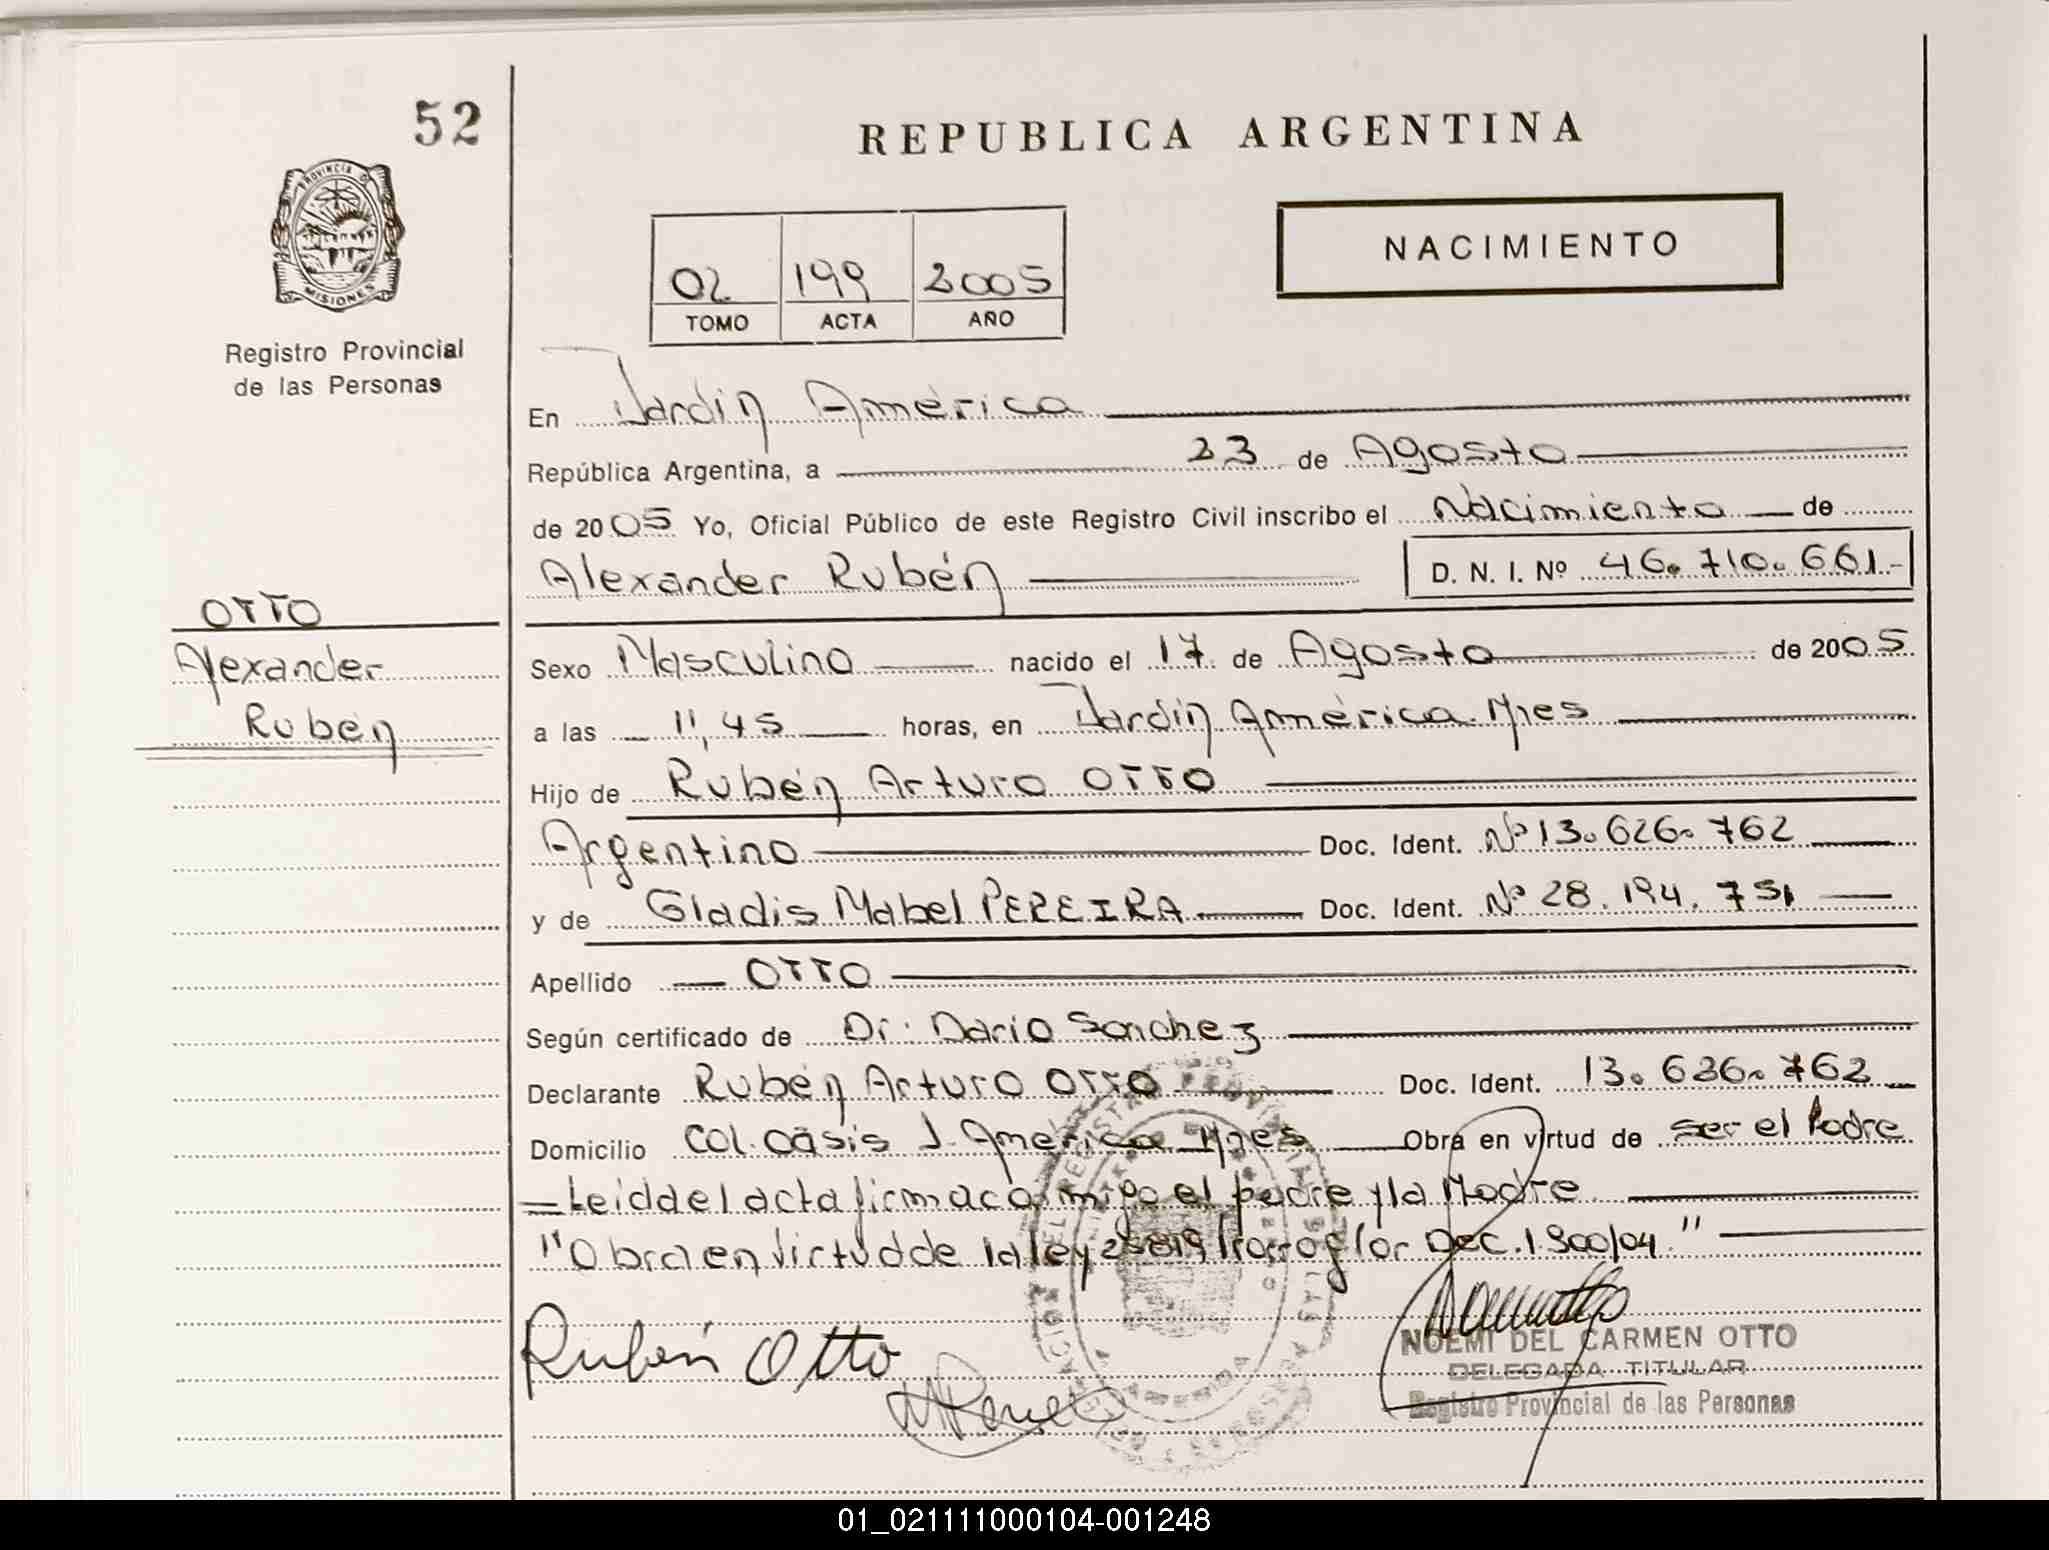 52
REPUBLICA ARGENTINA
PROVINCIA D
MISIONES
Registro Provincial
de las Personas
NACIMIENTO
02 199 2005
TOMO ACTA AÑO
En Jardín América
República Argentina, a 23 de Agosto
de 2005 Yo, Oficial Público de este Registro Civil inscribo el Nacimiento de
Alexander Rubén D. N. I. Nº 46.710.661-
OTTO
Alexander
Rubén
Sexo Masculino nacido el 17 de Agosto de 2005
a las 11,45 horas, en Jardín América. Mnes
Hijo de Rubén Arturo OTTO
Argentino Doc. Ident. Nº 13.626.762
y de Gladis Mabel PEREIRA Doc. Ident. Nº 28.194.751
Apellido OTTO
Según certificado de Dr. Dario Sanchez
Declarante Rubén Arturo OTTO Doc. Ident. 13.626.762
Domicilio Col. Oásis J. América Mnes Obra en virtud de ser el Padre
Leida el acta firma conmigo el padre y la Madre
"Obra en virtud de la ley 25819 Prorrog por Dec. 1.900/04."
Rubén Otto
NOEMI DEL CARMEN OTTO
DELEGADA TITULAR
Registro Provincial de las Personas
01_021111000104-001248